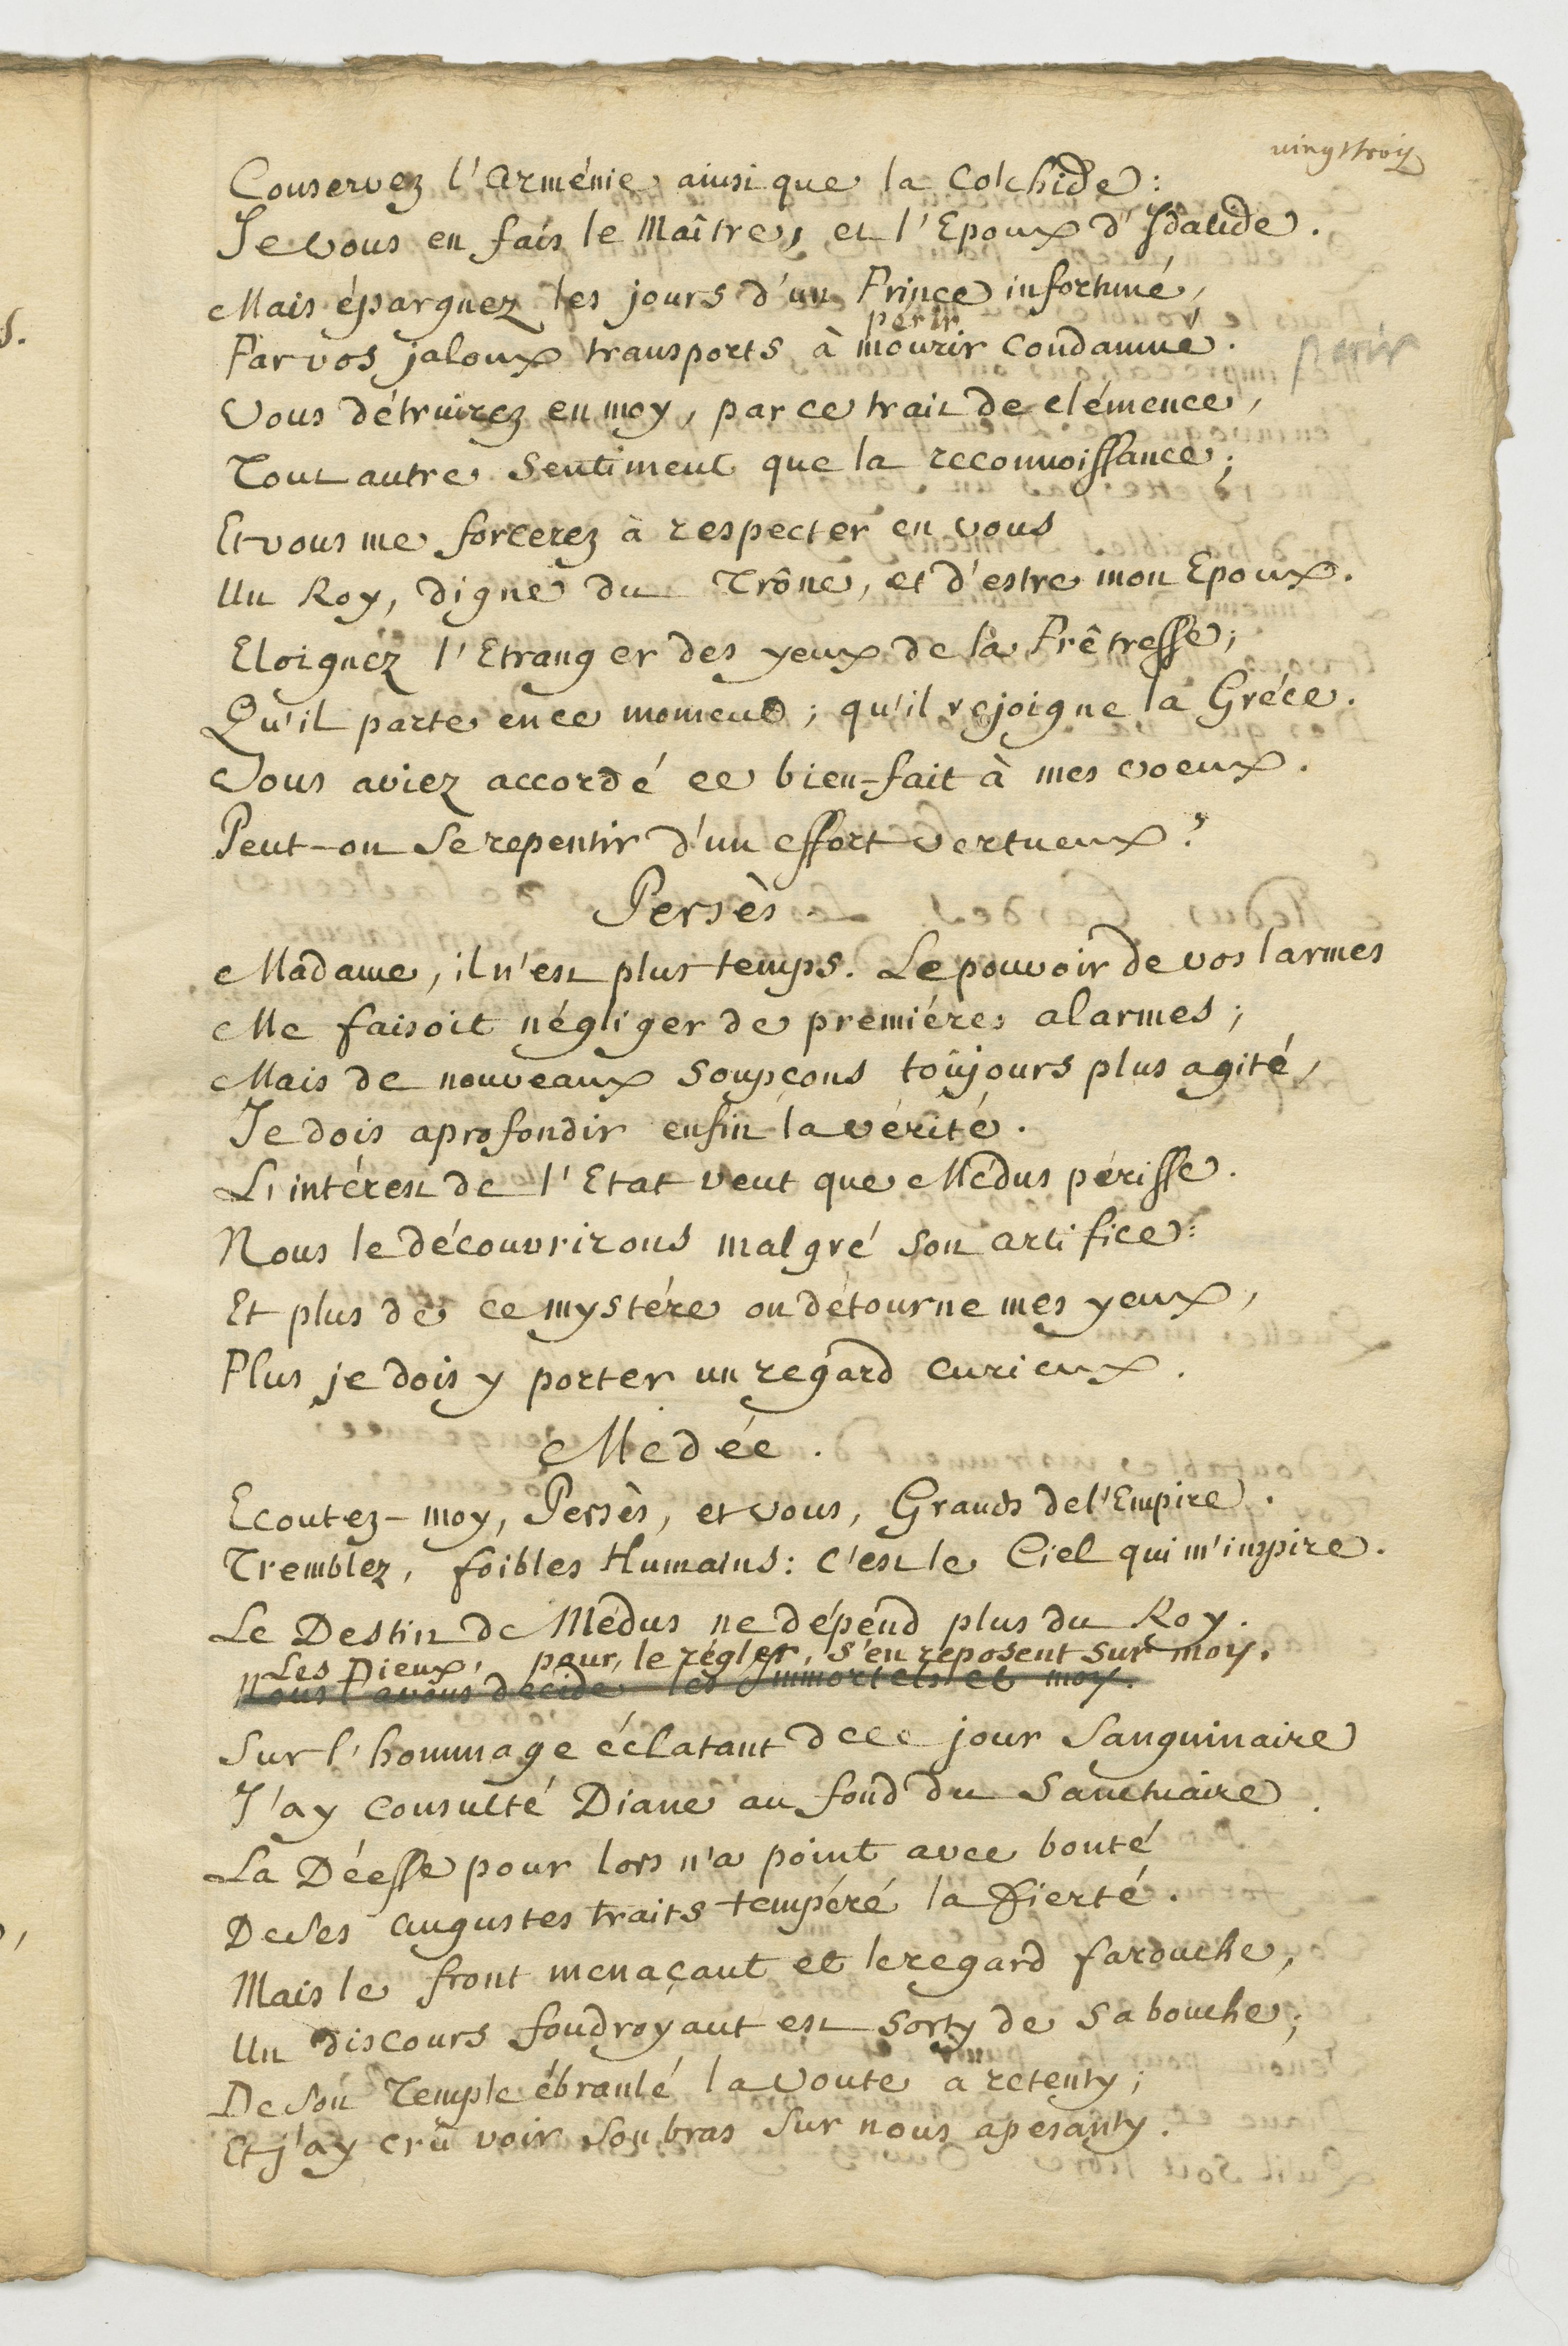 vingt trois
Conservez l'Arménie ainsi que la Colchide:
Je vous en fais le Maître, et l'Epoux d'Idalide.
Mais épargnez les jours d'un Prince infortuné,
périr
Par vos jaloux transports à mourir condamné. périr
Vous détruirez en moy, par ce trait de clémence,
Tout autre Sentiment que la reconnoissance;
Et vous me forcerez à respecter en vous
Un Roy, digne du Trône, et d'estre mon Epoux.
Eloignez l'Etranger des yeux de la Prêtresse;
Qu'il parte en ce moment; qu'il rejoigne la Gréce.
Vous aviez accordé ce bien-fait à mes voeux.
Peut-on se repentir d'un effort vertueux?
Persès.
Madame, il n'est plus temps. Le pouvoir de vos larmes
Me faisoit négliger de premiéres alarmes;
Mais de nouveaux soupçons toûjours plus agité,
Je dois aprofondir enfin la vérité.
L'intérest de l'Etat veut que Médus périsse.
Nous le découvrirons malgré son artifice:
Et plus de ce mystére on détourne mes yeux,
Plus je dois y porter un regard curieux.
Medée.
Ecoutez-moy, Persès, et vous, Grands de l'Empire.
Tremblez, foibles Humains: c'est le Ciel qui m'inspire.
Le Destin de Médus ne dépend plus du Roy.
Les Dieux, pour le régler, s'en reposent sur moy.
Nous l'avons décidé les Immortels et moy.
Sur l'hommage éclatant de ce jour Sanguinaire
J'ay consulté Diane au fond du Sanctuaire.
La Déesse pour lors n'a point avec bonté
De ses augustes traits tempéré la fierté.
Mais le front menaçant et le regard farouche,
Un discours foudroyant est sorty de sa bouche;
De son Temple ébranlé la voute a retenty;
Et j'ay crû voir son bras sur nous apesanty.